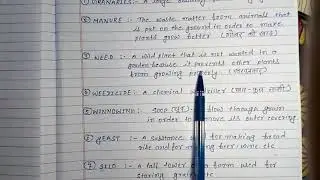 GRANARIES :- A large building
② MANURE :- The waste matter from animals that
is put on the ground in order to make
plants grow better. (गोबर की खाद)
③ WEED :- A wild plant that is not wanted in a
garden because it prevents other plants
from growing properly. (खरपतवार)
④ WEEDICIDE :- A chemical
⑤ WINNOWING :- blow through grain
in order to remove its outer covering.
⑥ YEAST :- A substance, used for making bread
rise and for making beer wine etc
⑦ SILO :- A tall tower on a farm used for
storing grain etc